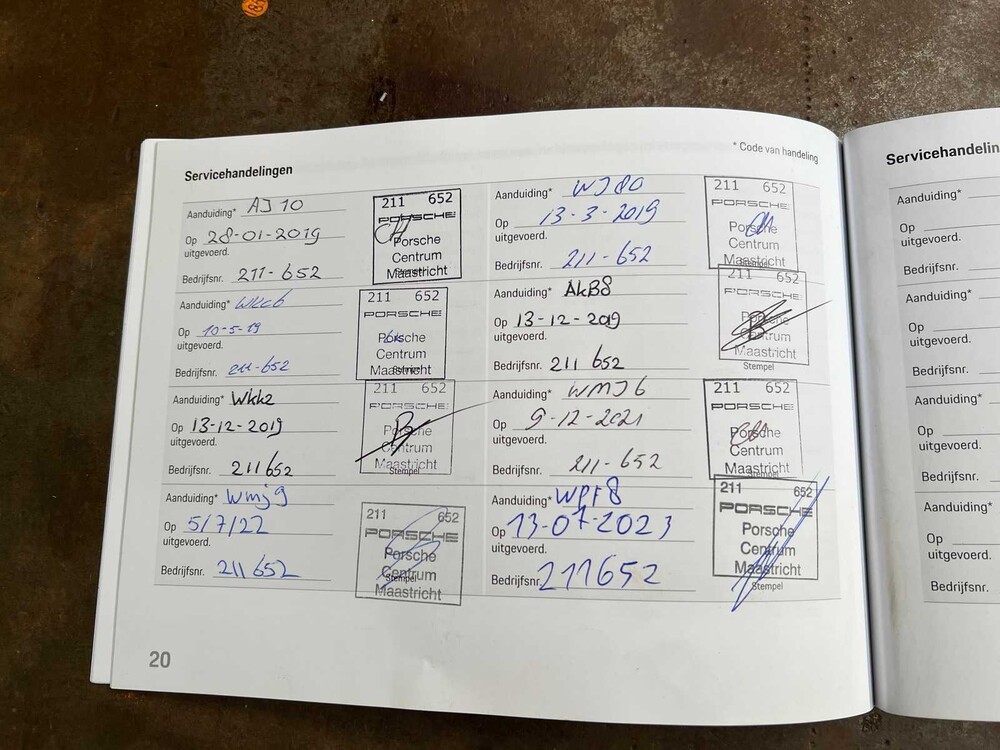 * Code van handeling
Servicehandelingen
Aanduiding* AJ 10
Op 28-01-2019
uitgevoerd.
Bedrijfsnr. 211-652
211 652
PORSCHE
Porsche
Centrum
Maastricht
Aanduiding* WJ80
Op 13-3-2019
uitgevoerd.
Bedrijfsnr. 211-652
211 652
PORSCHE
Porsche
Centrum
Maastricht
Stempel
Aanduiding* WKC6
Op 10-5-19
uitgevoerd.
Bedrijfsnr. 211-652
211 652
PORSCHE
Porsche
Centrum
Maastricht
Aanduiding* AKB8
Op 13-12-2019
uitgevoerd.
Bedrijfsnr. 211 652
211 652
PORSCHE
Porsche
Centrum
Maastricht
Stempel
Aanduiding* WKK2
Op 13-12-2019
uitgevoerd.
Bedrijfsnr. 211652
211 652
PORSCHE
Porsche
Centrum
Maastricht
Stempel
Aanduiding* WMJ6
Op 9-12-2021
uitgevoerd.
Bedrijfsnr. 211-652
211 652
PORSCHE
Porsche
Centrum
Maastricht
Aanduiding* Wmj9
Op 5/7/22
uitgevoerd.
Bedrijfsnr. 211652
211 652
PORSCHE
Porsche
Centrum
Stempel
Maastricht
Aanduiding* WPF8
Op 13-07-2023
uitgevoerd.
Bedrijfsnr. 211652
211 652
PORSCHE
Porsche
Centrum
Maastricht
Stempel
20
Servicehandelin
Aanduiding*
Op
uitgevoerd.
Bedrijfsnr.
Aanduiding*
Op
uitgevoerd.
Bedrijfsnr.
Aanduiding*
Op
uitgevoerd.
Bedrijfsnr.
Aanduiding*
Op
uitgevoerd.
Bedrijfsnr.